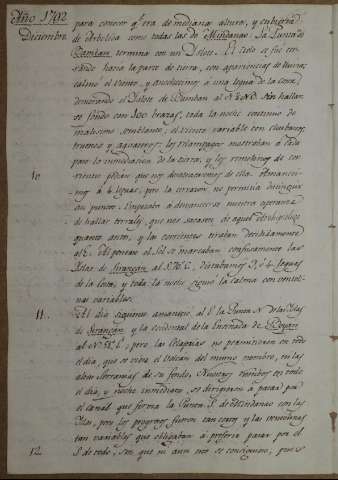 Año 1792
Diciembre
para conocer q.e era de mediana altura, y cubierta
de arboleda como todas las de Mindanao. La Punta de
termina con un Islote. El cielo se fue cer-
rando hacia la parte de tierra, con apariencias de lluvia;
calmó el viento, y anochecimos á una legua de la costa,
demorando el Islote de al sin hallar-
se fondo con 300 brazas, toda la noche continuó de
malísimo semblante, el viento variable con chubascos,
truenos y aguaceros; los relampagos mostraban á cada
paso la inmediacion de la tierra; y los remolinos de cor-
riente que nos de ella. Amaneci-
10
mos á 4 leguas, pero la cerrazon no permitia distinguir
un punto. Empezaba á desvanecerse nuestra esperanza
de hallar terrales, que nos sacasen de aquel
quanto antes, y las corrientes tiraban decididamente
al E. Al ponerse el Sol se marcaban confusamente las
Islas de Sirangan al distabamos 3, ó 4 leguas
de la costa, y toda la noche siguió la calma con ventoli-
nas variables.
11.
El dia siguiente amaneció al S. la Punta N. de las Islas
de Sirangan y la occidental de la Ensenada de
al pero las no permitieron en todo
el dia, que se viera el Volcan del mismo nombre, en las
de su fondo. Nuestros rumbos en todo
el dia, y noche inmediata, se dirigieron á pasar por
el canal que forma la Punta S. de Mindanao con las
Islas, pero los progresos fueron tan cortos y las ventolinas
tan variables que obligaban á preferir pasar por el
12
S. de todo, sin que ni aun esto se consiguiese, pues